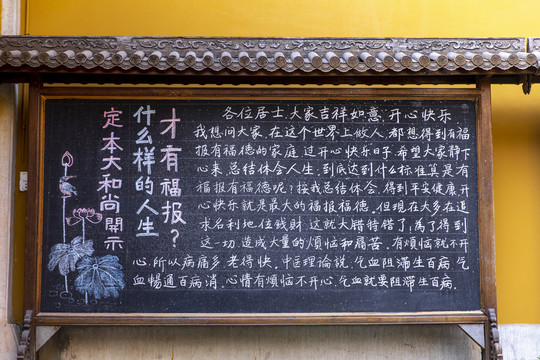 才有福报？
什么样的人生
定本大和尚開示
各位居士,大家吉祥如意,开心快乐
我想问大家,在这个世界上做人,都想得到有福
报有福德的家庭,过开心快乐日子,希望大家静下
心来,总结体会人生,到底达到什么标准真是有
福报有福德呢?按我总结体会,得到平安健康开
心快乐就是最大的福报福德。但现在大多在追
求名利地位錢財,这就大错特错了,為了得到
这一切,造成大量的煩恼和痛苦。有煩恼就不开
心,所以病痛多,老得快。中医理论说,气血阻滞生百病,气
血暢通百病消。心情有煩恼不开心,气血就要阻滞生百病.